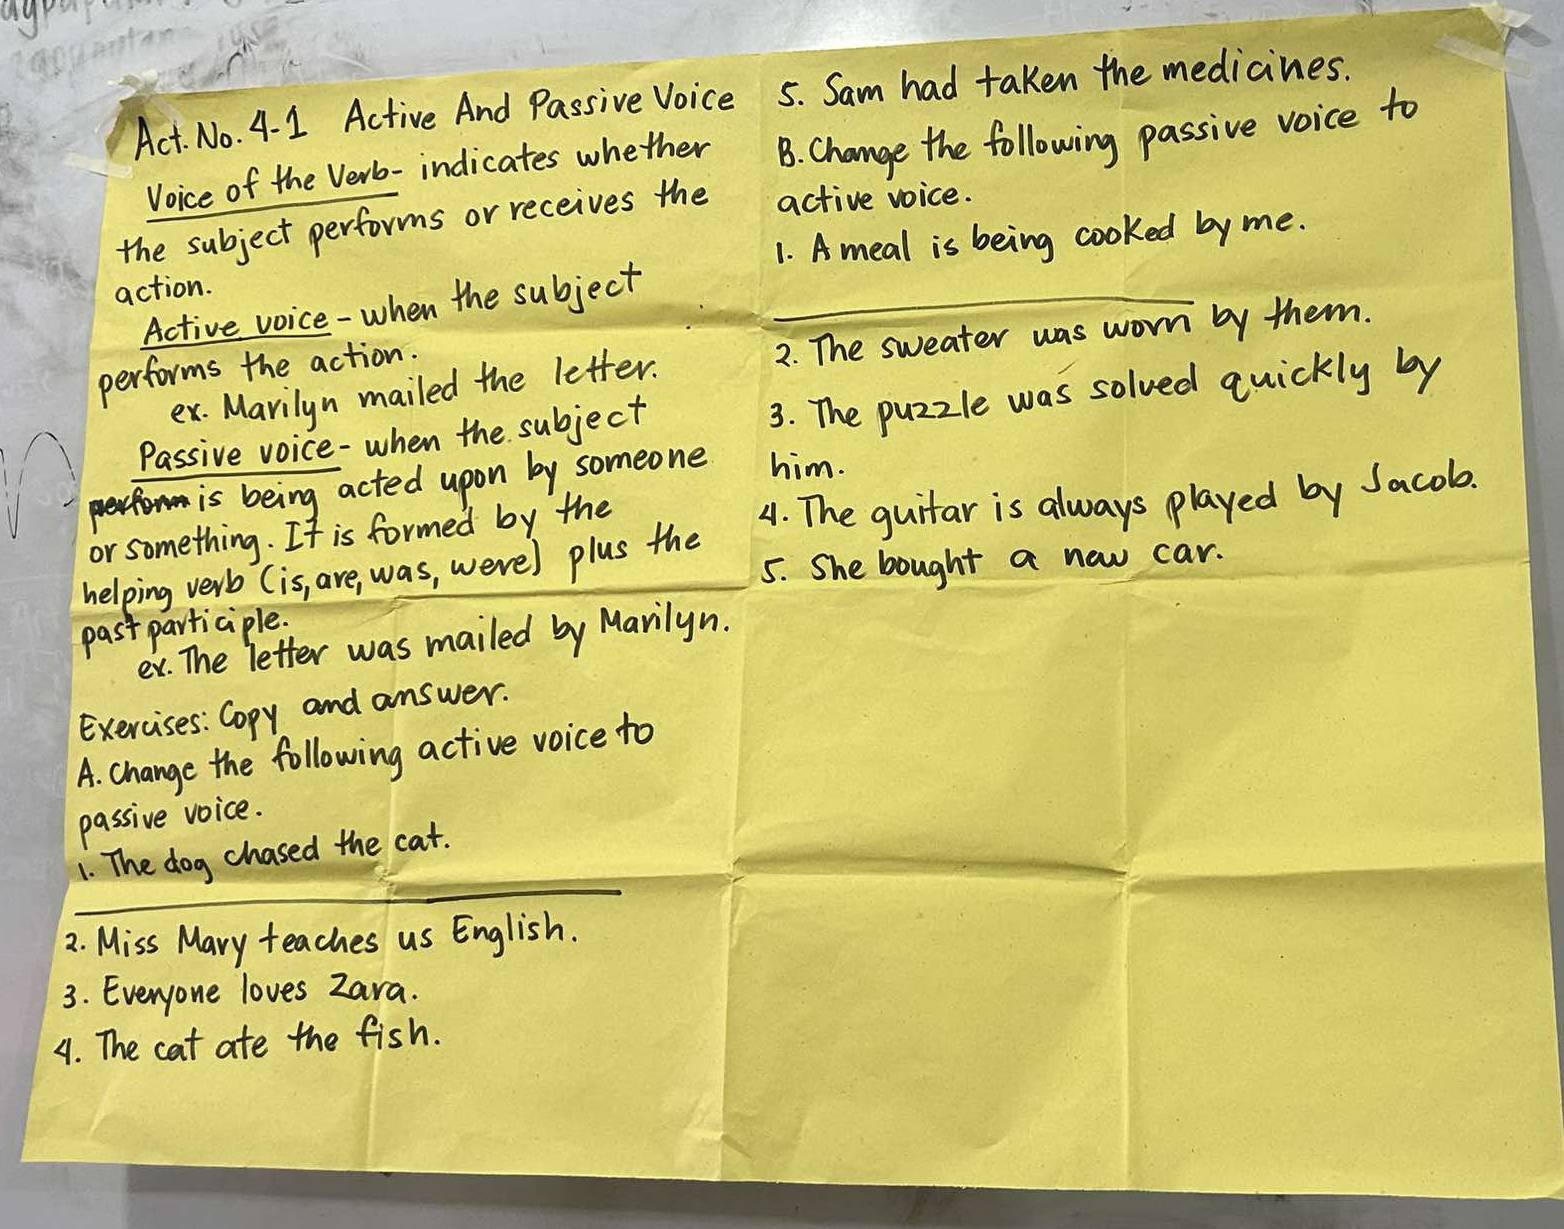 Act. No. 4-1 Active And Passive Voice
Voice of the Verb- indicates whether
the subject performs or receives the
action.
Active voice - when the subject
performs the action.
ex. Marilyn mailed the letter.
Passive voice - when the subject
perform is being acted upon by someone
or something. It is formed by the
helping verb (is, are, was, were) plus the
past participle.
ex. The letter was mailed by Marilyn.
Exercises: Copy and answer.
A. Change the following active voice to
passive voice.
1. The dog chased the cat.
2. Miss Mary teaches us English.
3. Everyone loves Zara.
4. The cat ate the fish.
5. Sam had taken the medicines.
B. Change the following passive voice to
active voice.
1. A meal is being cooked by me.
2. The sweater was worn by them.
3. The puzzle was solved quickly by
him.
4. The guitar is always played by Jacob.
5. She bought a new car.